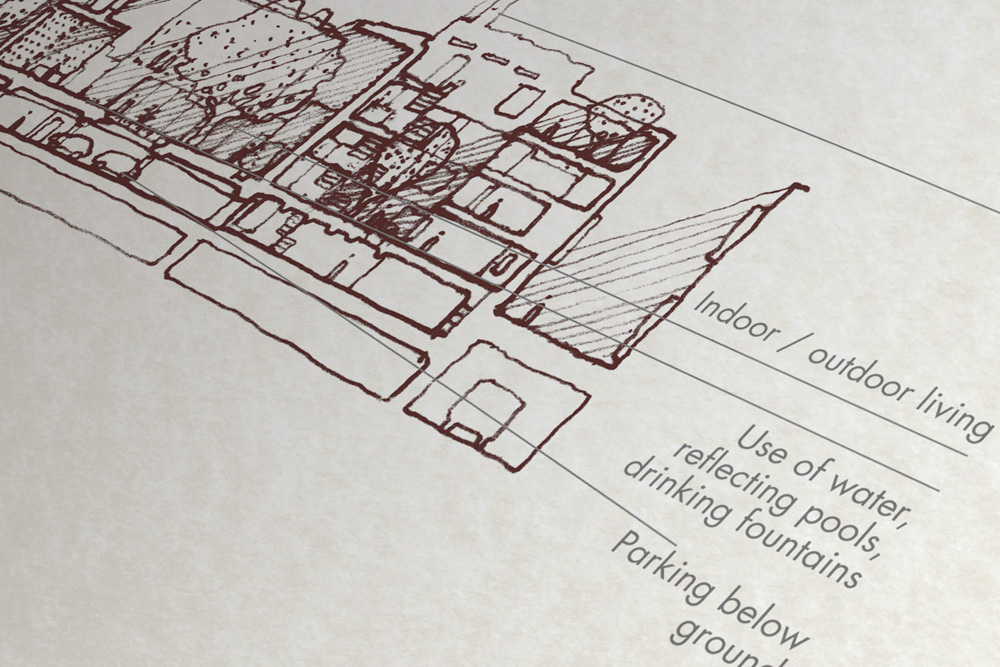 Indoor / outdoor living
Use of water,
reflecting pools,
drinking fountains
Parking below
ground